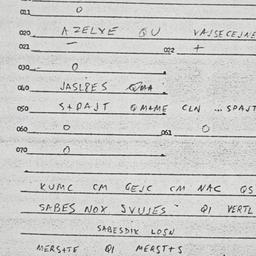 011 0
020 AZELYE QU VAJSECEJNE
021 - 022 +
030 0
040 JASLPES
050 S+DAJT QMAME CLN ... SPAJT
060 0 061 0
070 0
KUMC CM GEJC CM NAC QS
SABES NOX SVUJES QI VERTL
SABESDIX LOSN
MERS+TE QI MERST+S